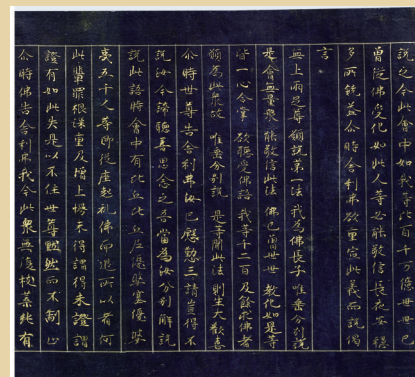 說之今此會中如我等比百千万億世世已
曾從佛受化如此人等必能敬信長夜安穩
多所饒益尒時舍利弗欲重宣此義而說偈
言
無上兩足尊 願說第一法 我為佛長子 唯垂分別說
是會無量衆 能敬信此法 佛已曾世世 教化如是等
皆一心合掌 欲聽受佛語 我等千二百 及餘求佛者
願為此衆故 唯垂分別說 是等聞此法 則生大歡喜
尒時世尊告舍利弗汝已慇懃三請豈得不
說汝今諦聽善思念之吾當為汝分別解說
說此語時會中有比丘比丘尼優婆塞優婆
夷五千人等即從座起礼佛而退所以者何
此輩罪根深重及增上慢未得謂得未證謂
證有如此失是以不住世尊黙然而不制止
尒時佛告舍利弗我今此衆無復枝葉純有